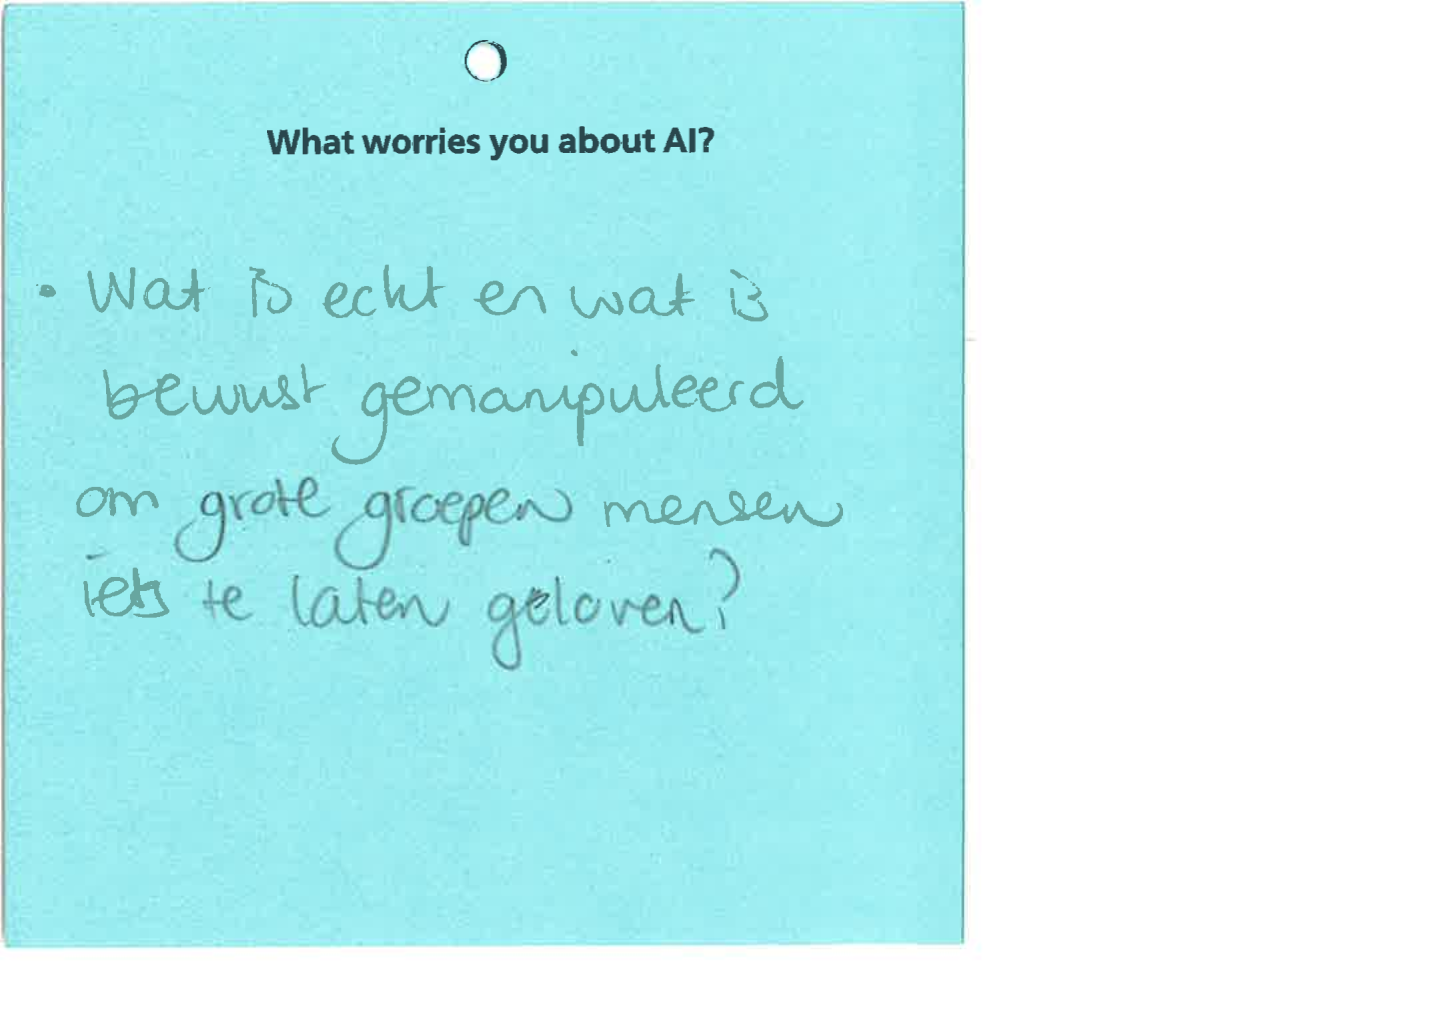 What worries you about AI?
• Wat is echt en wat is
bewust gemanipuleerd
om grote groepen mensen
iets te laten geloven?